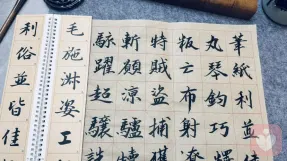 筆紙利並
丸琴鈞巧
叛亡布射
特賊盜捕獲
斬願涼驢犢
駭躍超驤誅
毛施淑姿工
利俗並皆佳